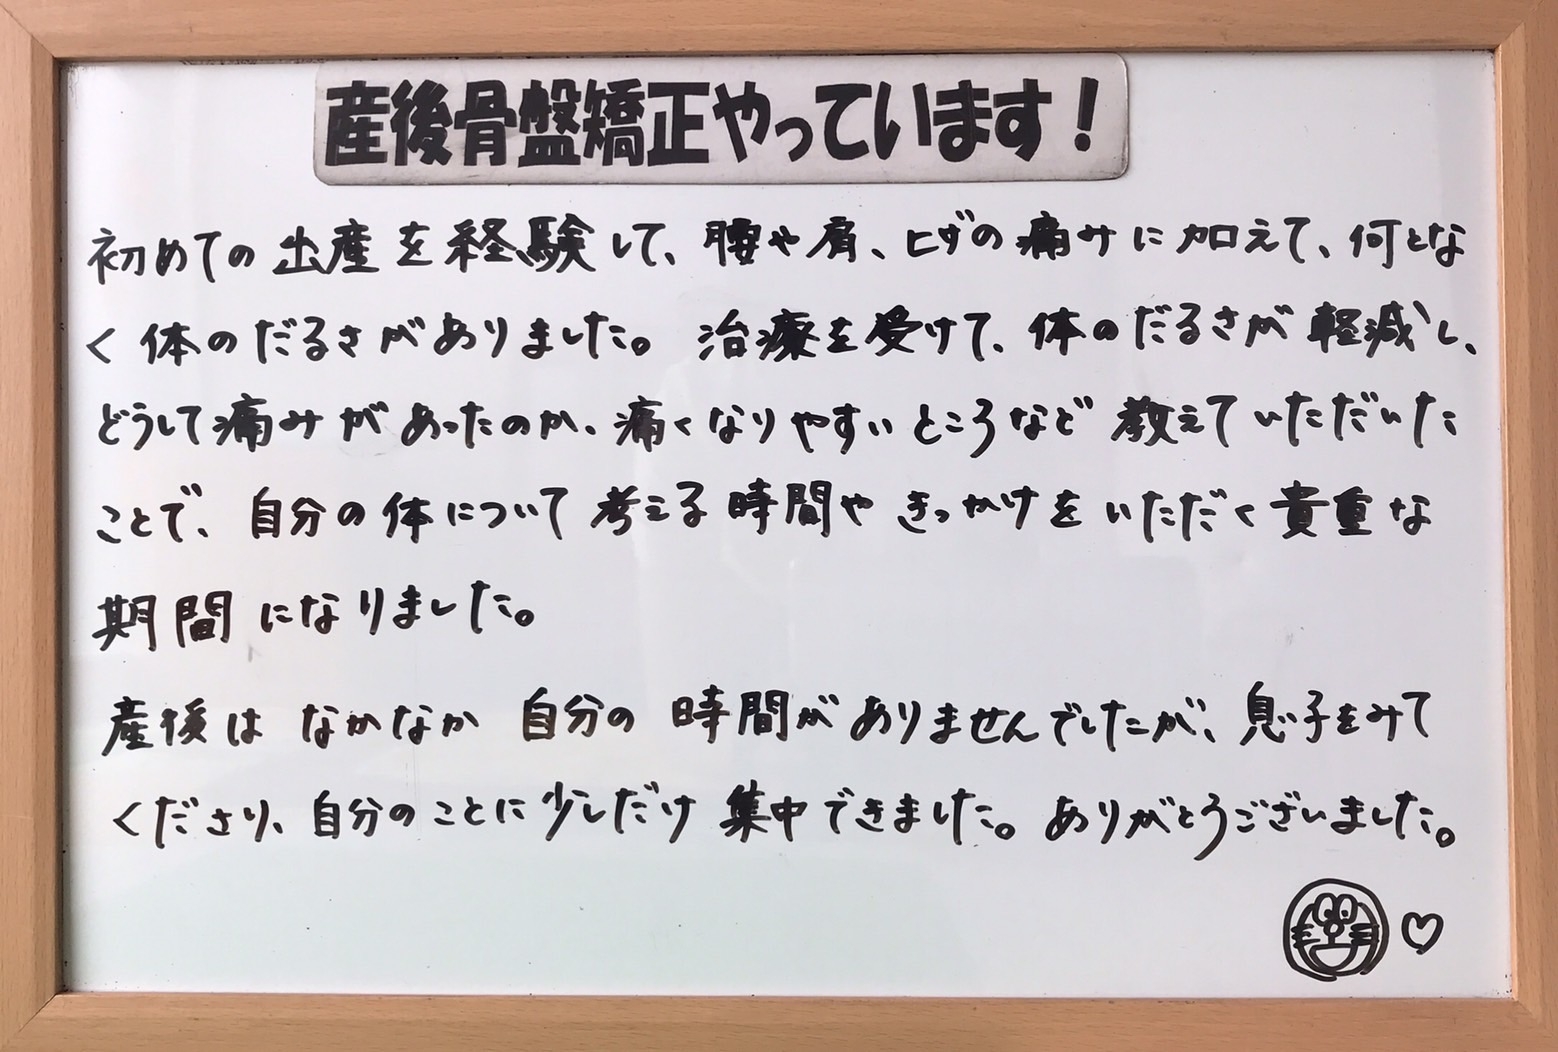 産後骨盤矯正やっています！
初めての出産を経験して、腰や肩、ヒザの痛みに加えて、何とな
く体のだるさがありました。治療を受けて、体のだるさが軽減し、
どうして痛みがあったのか、痛くなりやすいところなど教えていただいた
ことで、自分の体について考える時間やきっかけをいただく貴重な
期間になりました。
産後はなかなか自分の時間がありませんでしたが、息子をみて
くださり、自分のことに少しだけ集中できました。ありがとうございました。